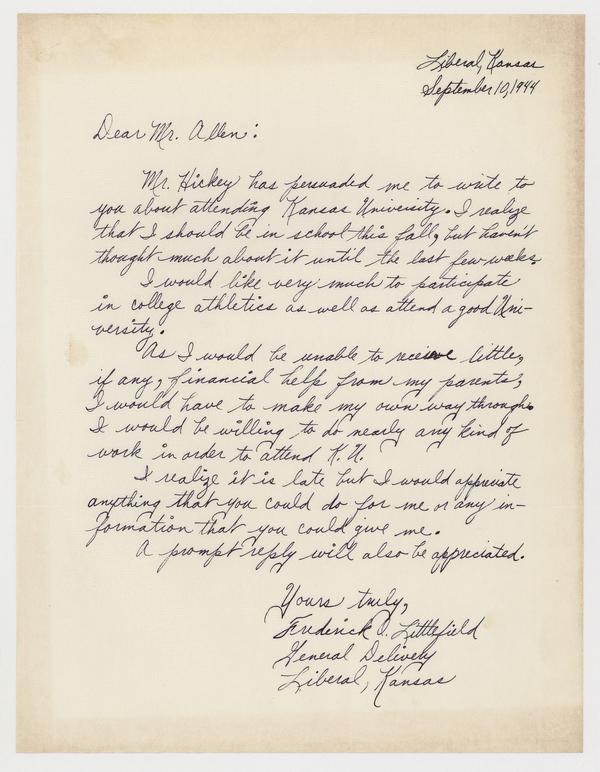 Liberal, Kansas
September 10, 1944
Dear Mr. Allen:
Mr. Hickey has persuaded me to write to
you about attending Kansas University. I realize
that I should be in school this fall, but haven't
thought much about it until the last few weeks.
I would like very much to participate
in college athletics as well as attend a good Uni-
versity.
As I would be unable to receive little,
if any, financial help from my parents,
I would have to make my own way through.
I would be willing to do nearly any kind of
work in order to attend K. U.
I realize it is late but I would appreciate
anything that you could do for me or any in-
formation that you could give me.
A prompt reply will also be appreciated.
Yours truly,
Frederick O. Littlefield
General Delivery
Liberal, Kansas